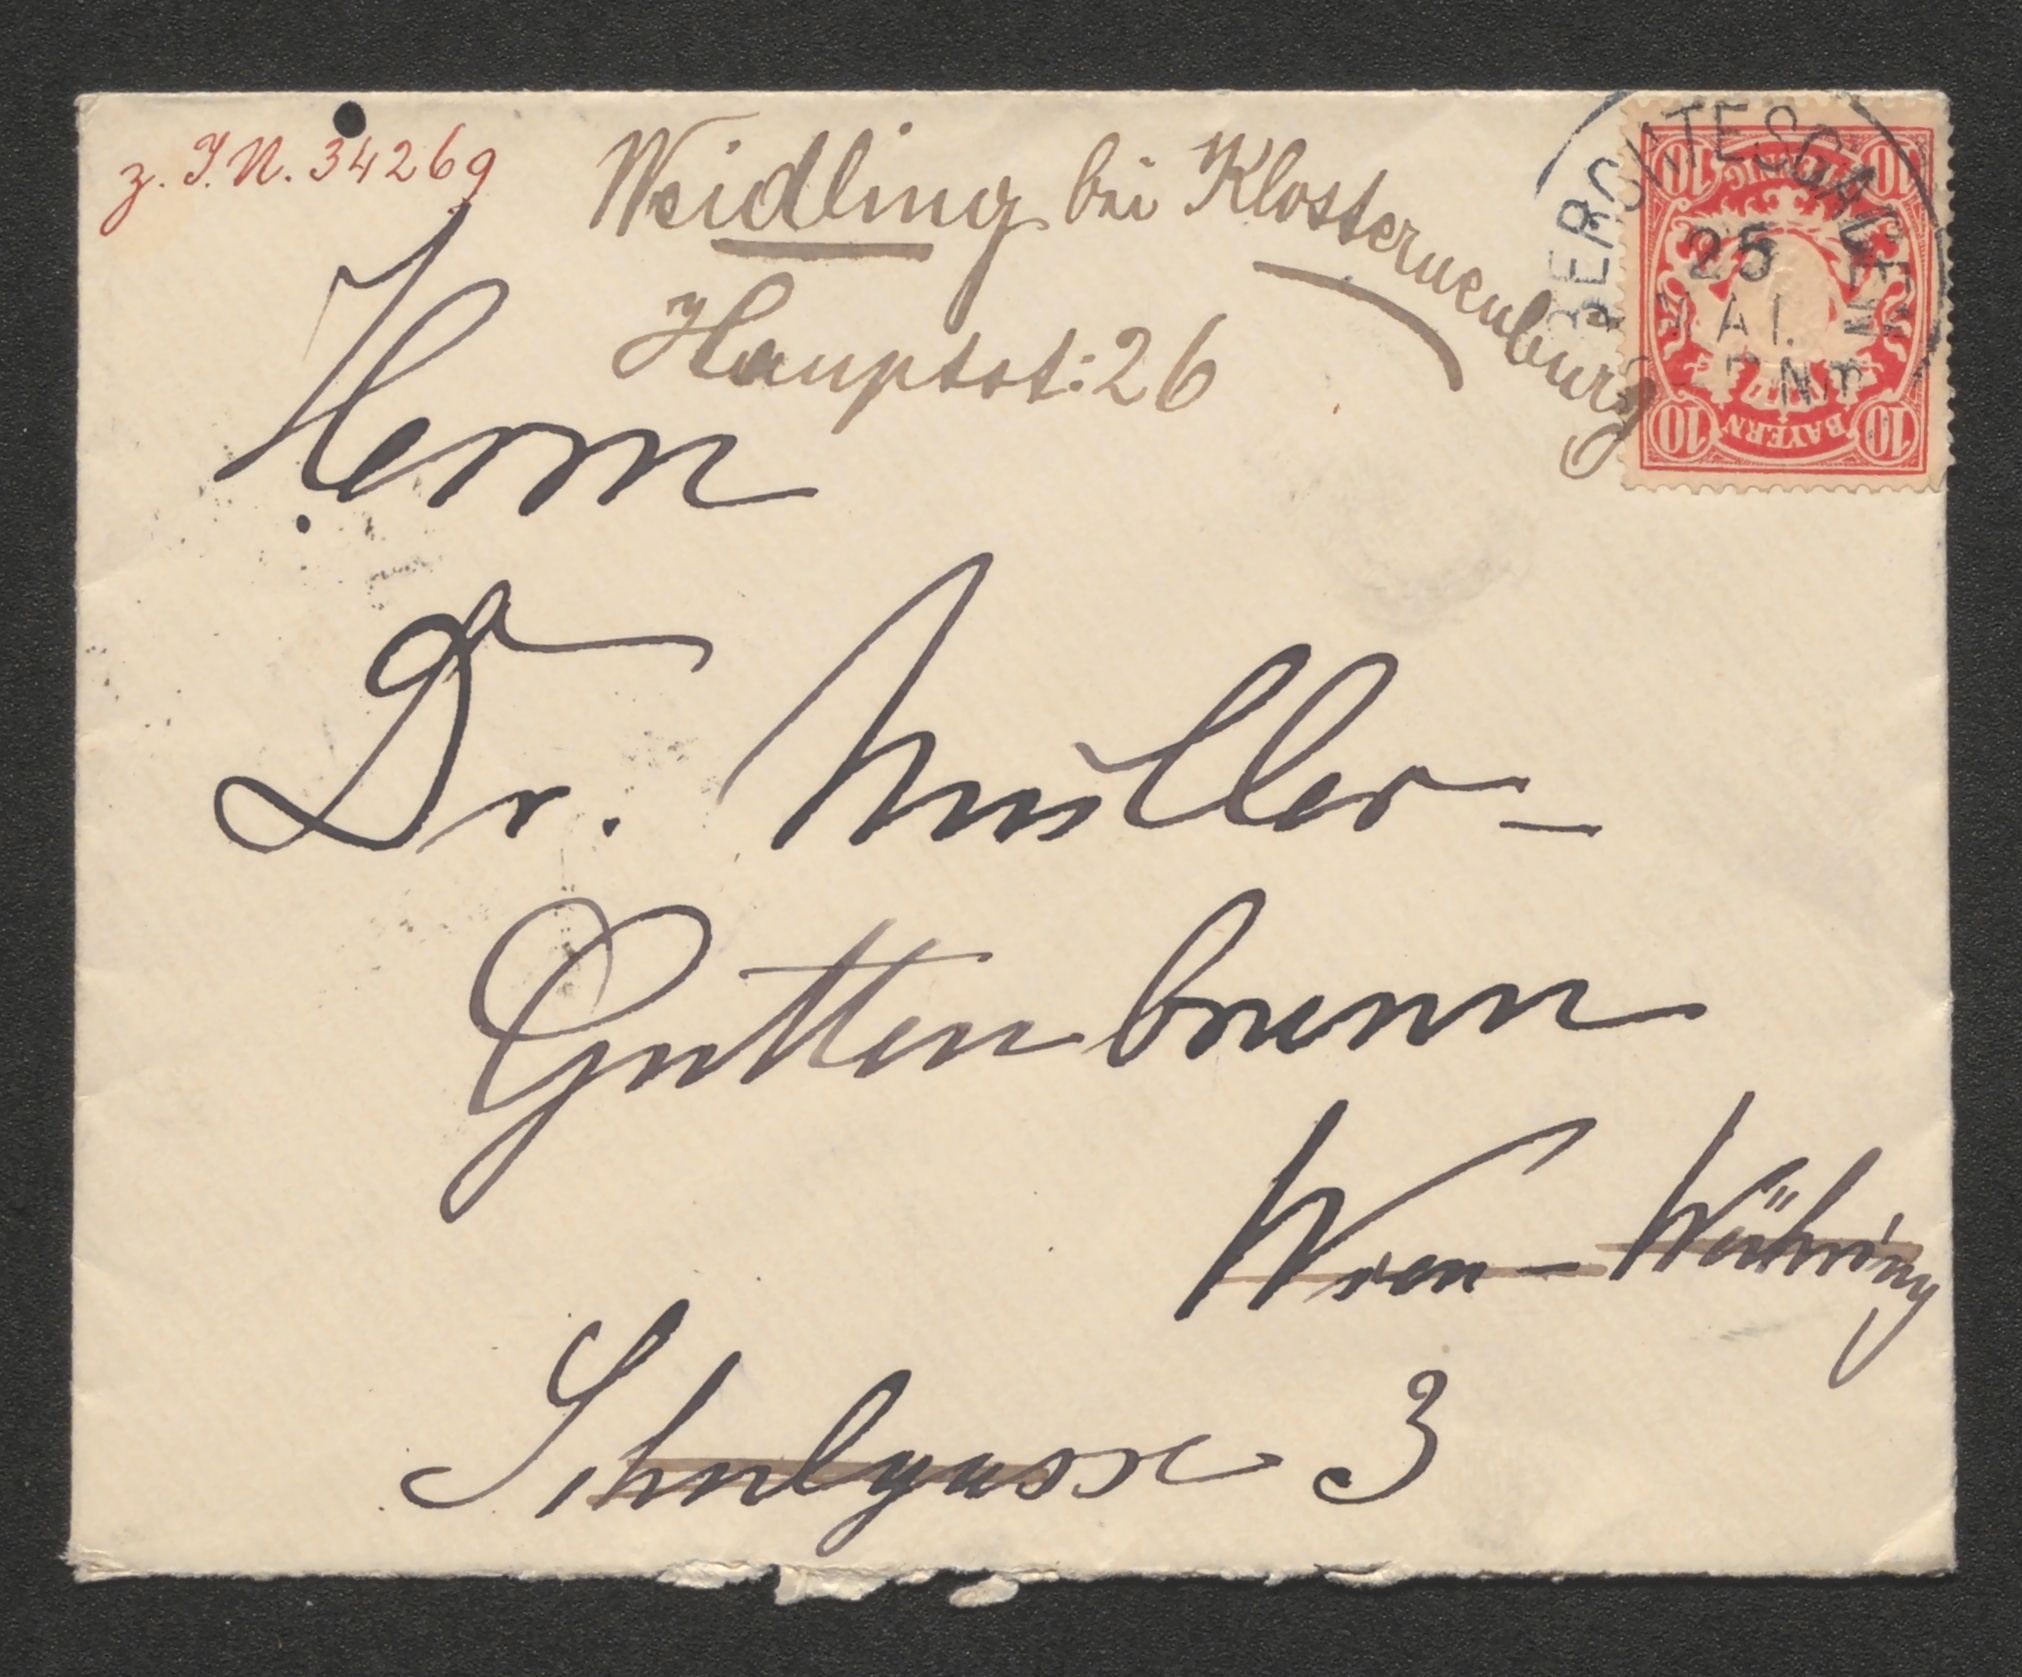 z. I.N. 34269
Weidling bei Klosterneuburg
Hauptst: 26
BERCHTESGADEN
25
MAI.
Nm
10 10
BAYERN
10 10
Herrn
Dr. Müller-
Guttenbrunn
Wien - Währing
Schulgasse 3